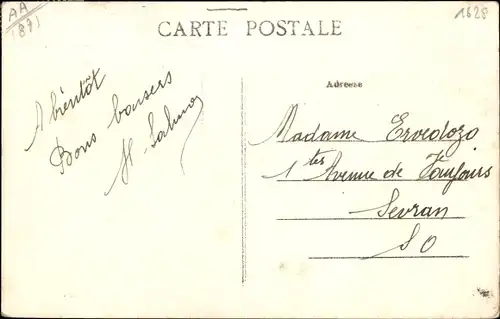 AA
1891
1628
CARTE POSTALE
A bientôt
Bons baisers
H
Adresse
Madame Ervedozo
1 tes Avenue de
Sevran
S O